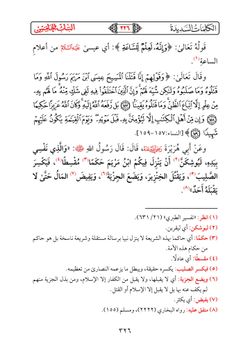 الكلمات السديدة
٣٢٦
قوله تعالى: ﴿وَإِنَّهُ لَعِلْمٌ لِلسَّاعَةِ﴾: أي عيسى عليه السلام من أعلام
الساعة(١).
وقال تعالى: ﴿وَقَوْلِهِمْ إِنَّا قَتَلْنَا الْمَسِيحَ عِيسَى ابْنَ مَرْيَمَ رَسُولَ اللَّهِ وَمَا
قَتَلُوهُ وَمَا صَلَبُوهُ وَلَكِنْ شُبِّهَ لَهُمْ وَإِنَّ الَّذِينَ اخْتَلَفُوا فِيهِ لَفِي شَكٍّ مِنْهُ مَا لَهُمْ بِهِ
مِنْ عِلْمٍ إِلَّا اتِّبَاعَ الظَّنِّ وَمَا قَتَلُوهُ يَقِينًا ۝ بَلْ رَفَعَهُ اللَّهُ إِلَيْهِ وَكَانَ اللَّهُ عَزِيزًا حَكِيمًا
۝ وَإِنْ مِنْ أَهْلِ الْكِتَابِ إِلَّا لَيُؤْمِنَنَّ بِهِ قَبْلَ مَوْتِهِ وَيَوْمَ الْقِيَامَةِ يَكُونُ عَلَيْهِمْ
شَهِيدًا ۝﴾ [النساء:١٥٧-١٥٩].
وعن أبي هُرَيْرَةَ رضي الله عنه قال: قال رَسُولُ اللهِ ﷺ: «وَالَّذِي نَفْسِي
بِيَدِهِ، لَيُوشِكَنَّ(٢) أَنْ يَنْزِلَ فِيكُمُ ابْنُ مَرْيَمَ حَكَمًا(٣) مُقْسِطًا(٤)، فَيَكْسِرَ
الصَّلِيبَ(٥)، وَيَقْتُلَ الْخِنْزِيرَ، وَيَضَعَ الْجِزْيَةَ(٦)، وَيَفِيضَ(٧) الْمَالُ حَتَّى لَا
يَقْبَلَهُ أَحَدٌ»(٨).
(١) انظر: «تفسير الطبري» (٢١/ ٦٣١).
(٢) ليوشكن: أي ليقربن.
(٣) حكمًا: أي حاكما بهذه الشريعة لا ينزل نبيا برسالة مستقلة وشريعة ناسخة بل هو حاكم
من حكام هذه الأمة.
(٤) مقسطًا: أي عادلًا.
(٥) فيكسر الصليب: يكسره حقيقة، ويبطل ما يزعمه النصارى من تعظيمه.
(٦) ويضع الجزية: أي لا يقبلها، ولا يقبل من الكفار إلا الإسلام، ومن بذل الجزية منهم
لم يكف عنه بها بل لا يقبل إلا الإسلام أو القتل.
(٧) يفيض: أي يكثر.
(٨) متفق عليه: رواه البخاري (٢٢٢٢)، ومسلم (١٥٥).
٣٢٦